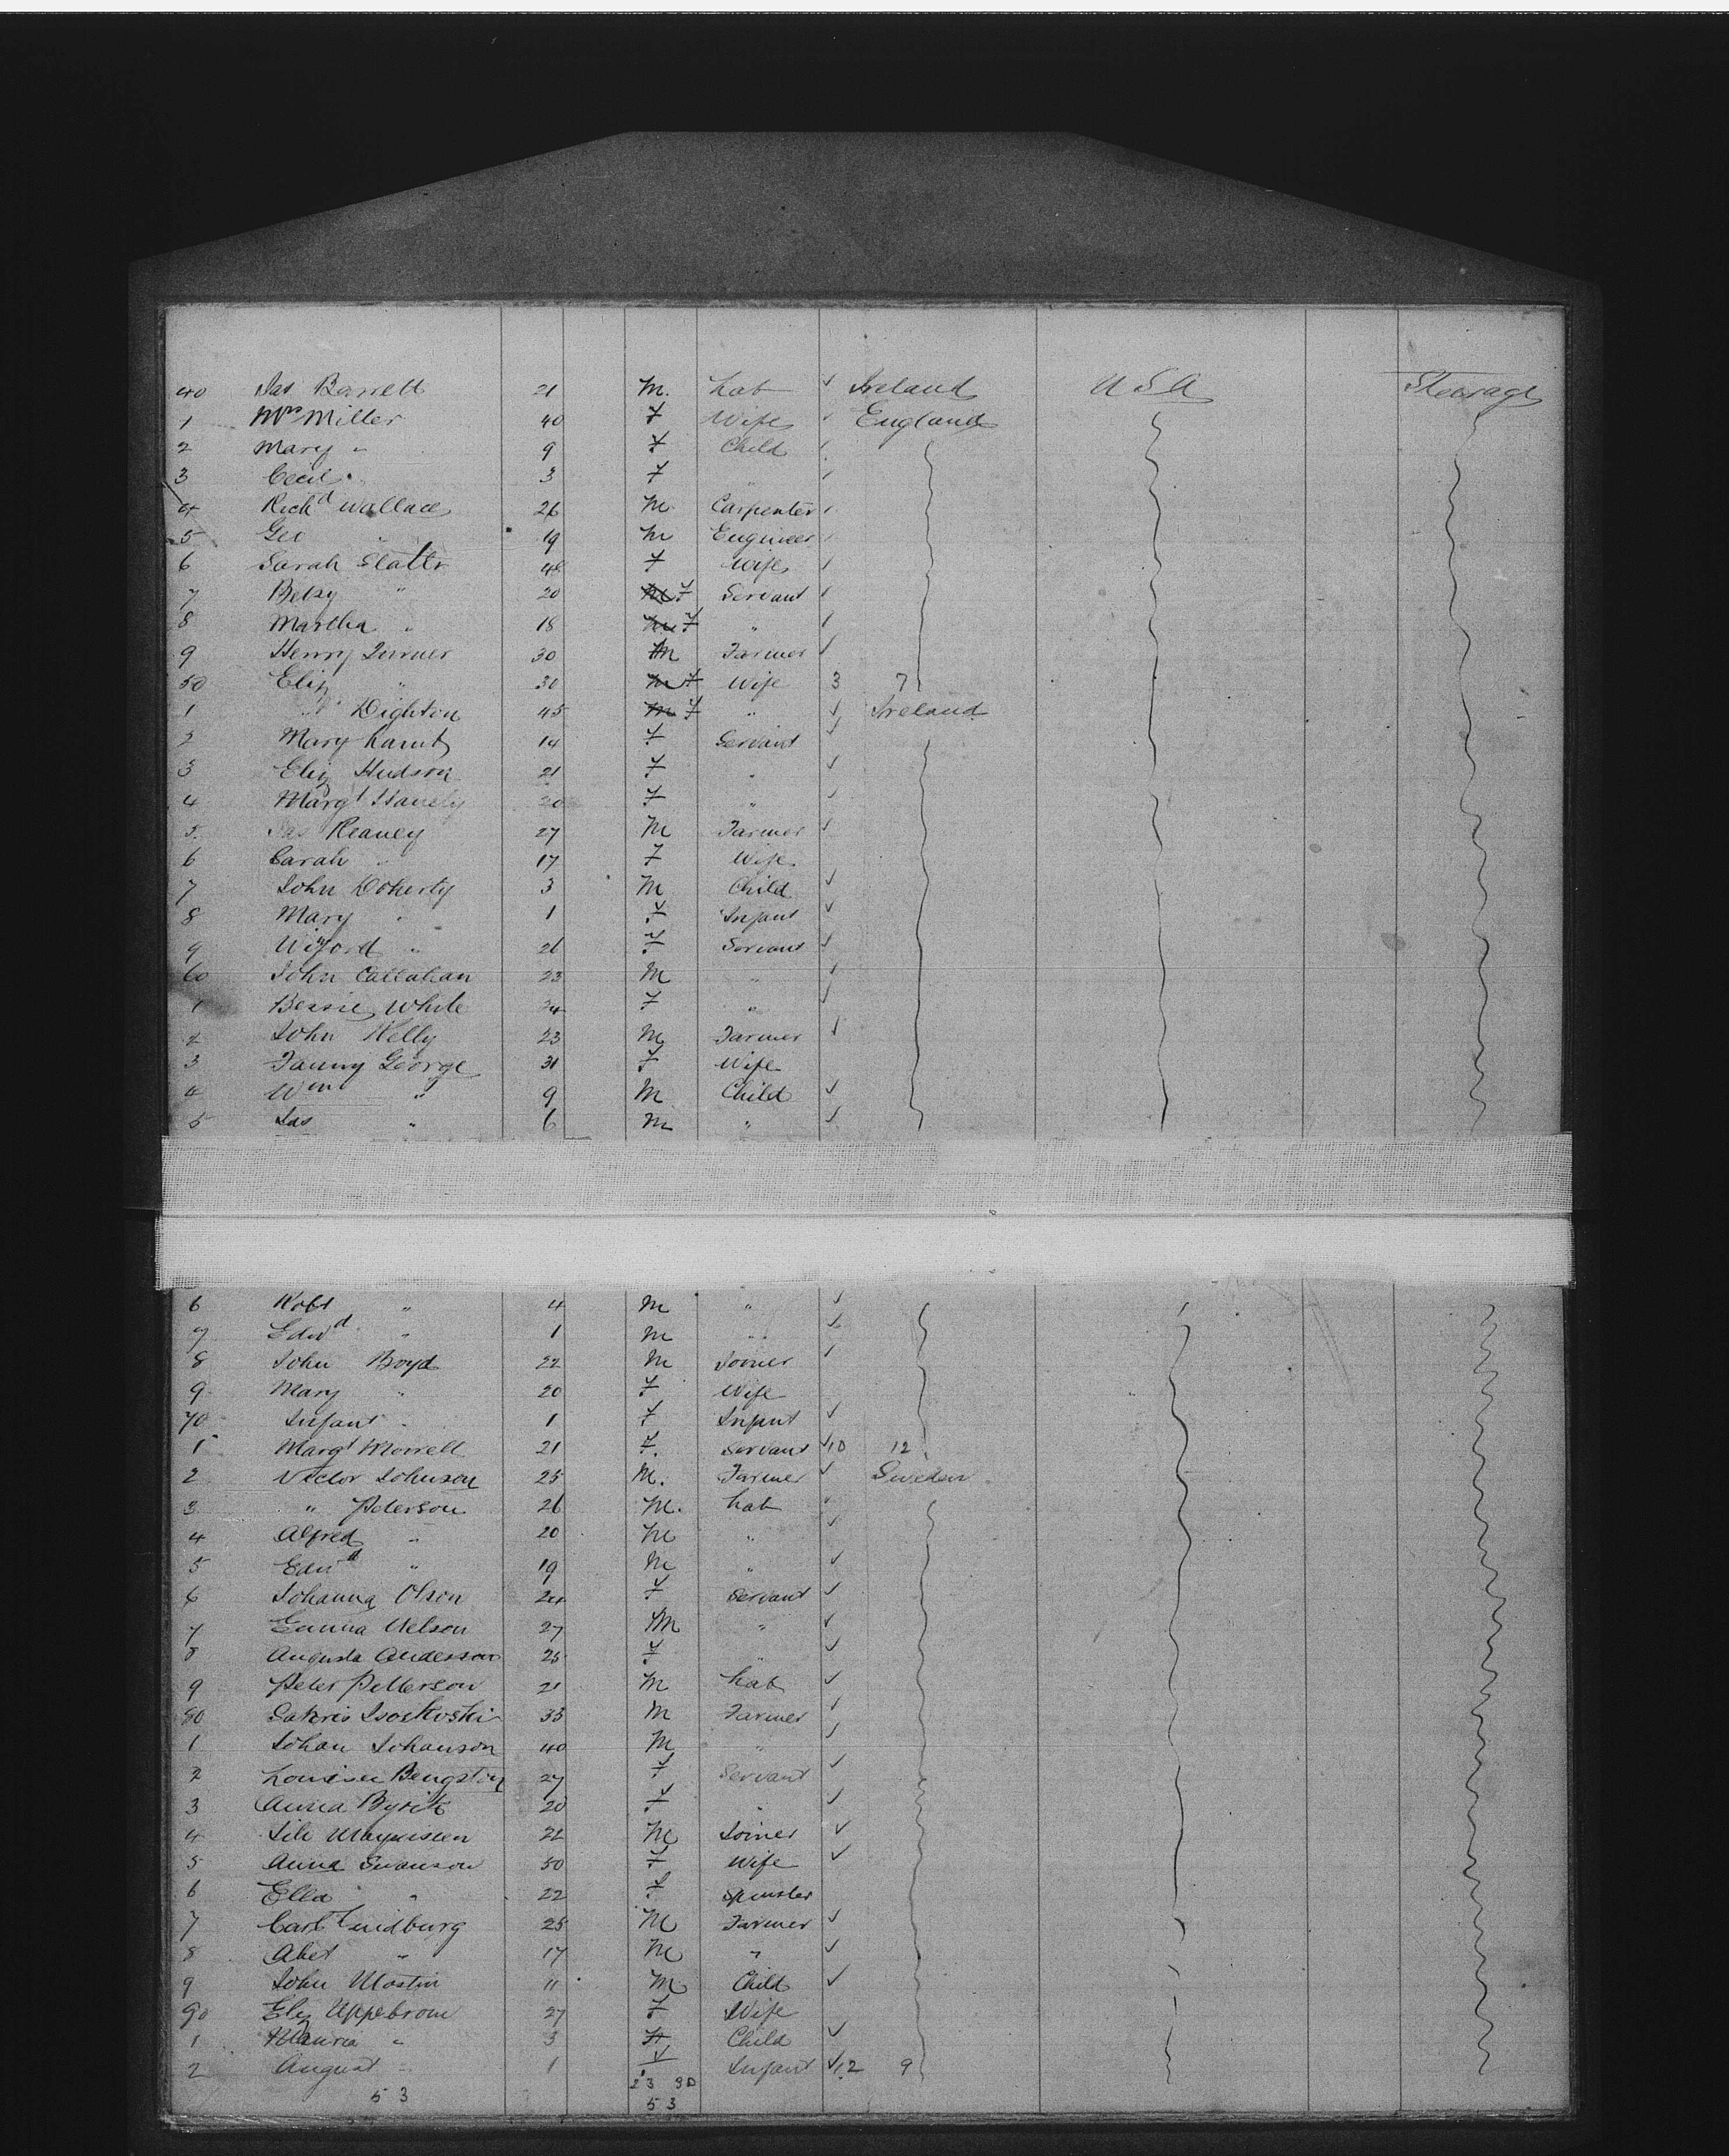 40 Jas Barrett 21 M. Lab ✓ Ireland USA Steerage
1 Mrs Miller 40 F Wife England
2 Mary " 9 F Child
3 Cecil " 3 F "
4 Richd Wallace 26 M Carpenter
5 Geo " 19 M Engineer
6 Sarah Slatter 48 F Wife
7 Betsy " 20 F Servant
8 Martha " 18 F "
9 Henry Turner 30 M Farmer
50 Eliz " 30 F Wife 3 7
1 " Dighton 45 F " Ireland
2 Mary 14 F Servant
3 Eliz Hudson 21 F "
4 Margt 20 F "
5 Jas Reaney 27 M Farmer
6 Sarah " 17 F Wife
7 John Doherty 3 M Child
8 Mary " 1 F Infant
9 " 26 F Servant
60 John Callahan 23 M "
1 Bessie White 24 F "
2 John Kelly 23 M Farmer
3 Fanny George 31 F Wife
4 Wm " 9 M Child
5 Jas " 6 M "
6 Robt " 4 M "
7 Edwd " 1 M "
8 John Boyd 22 M Joiner
9 Mary " 20 F Wife
70 Infant " 1 F Infant
1 Margt Morrell 21 F. Servant 10 12
2 Victor Johnson 25 M. Farmer Sweden
3 " Peterson 26 M. Lab
4 Alfred " 20 M "
5 Edwd " 19 M "
6 Johanna Olson 24 F Servant
7 Emma Nelson 27 M "
8 Augusta Anderson 25 F "
9 Peter Petterson 21 M Lab
80 35 M Farmer
1 Johan Johanson 40 M "
2 Bengston 27 F Servant
3 Anna 20 F "
4 22 M Joiner
5 Anna Swanson 50 F Wife
6 Ella " 22 F Spinster
7 Carl Lindburg 25 M Farmer
8 " 17 M "
9 John 11 M Child
90 Eliz Uppebrom 27 F Wife
1 " 3 F Child
2 August " 1 Infant 12 9
53 23 30
53